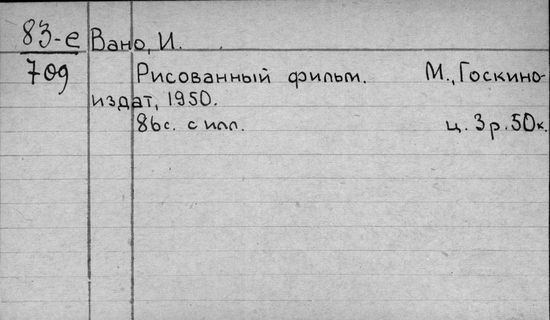 83-е Вано, И.
709 Рисованный фильм. М., Госкино-
издат, 1950.
86с. с илл. ц. 3р. 50к.